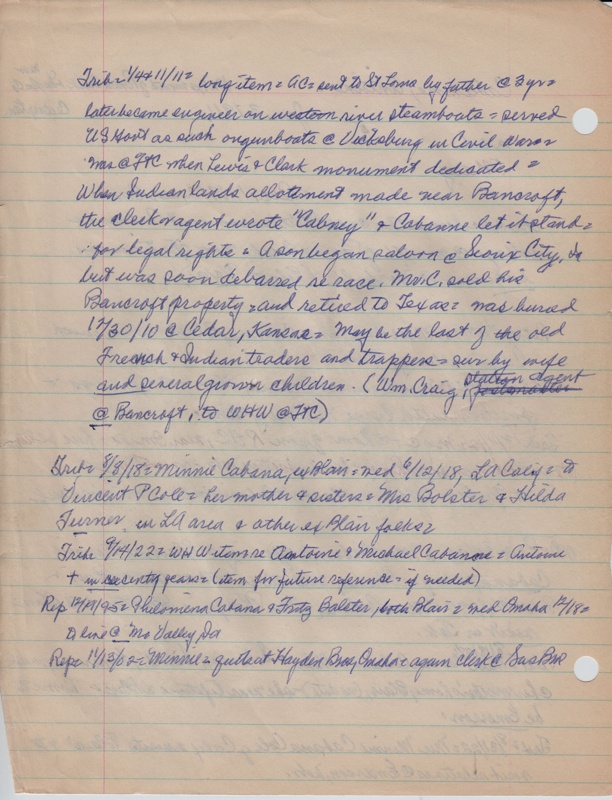 Trib= 1/4 & 11/11= long item = AC= sent to St Louis by father @ 3 yr=
later became engineer on western river steamboats = served
US Govt as such on gunboats @ Vicksburg in Civil War=
was @ FtC when Lewis & Clark monument dedicated =
When Indian lands allotement made near Bancroft,
the clerk or agent wrote "Cabney" & Cabanne let it stand=
for legal rights = A son began saloon @ Sioux City, Ia
but was soon debarred re race. Mr. C. sold his
Bancroft property = and retired to Texas = was buried
12/30/10 @ Cedar, Kansas = May be the last of the old
French & Indian traders and trappers = sur by wife
and several grown children. (Wm. Craig, station agent
@ Bancroft, to WHW @ FtC)
Trib= 8/8/18= Minnie Cabana, ex Blair = wed 6/12/18, LA Calif = to
Vincent P Cole = her mother & sisters = Mrs Bolster & Hilda
Turner in LA area & other ex Blair folks=
Trib= 9/14/22= WHW item re Antoine & Michael Cabanne = Antoine
+ in recent years = (item for future reference = if needed)
Rep 12/19/95= Philomena Cabana & Fritz Bolster, both Blair = wed Omaha 12/18=
to live @ Mo Valley, Ia
Rep= 11/13/02= Minnie = quits at Hayden Bros, Omaha = again clerk @ Sas Bros